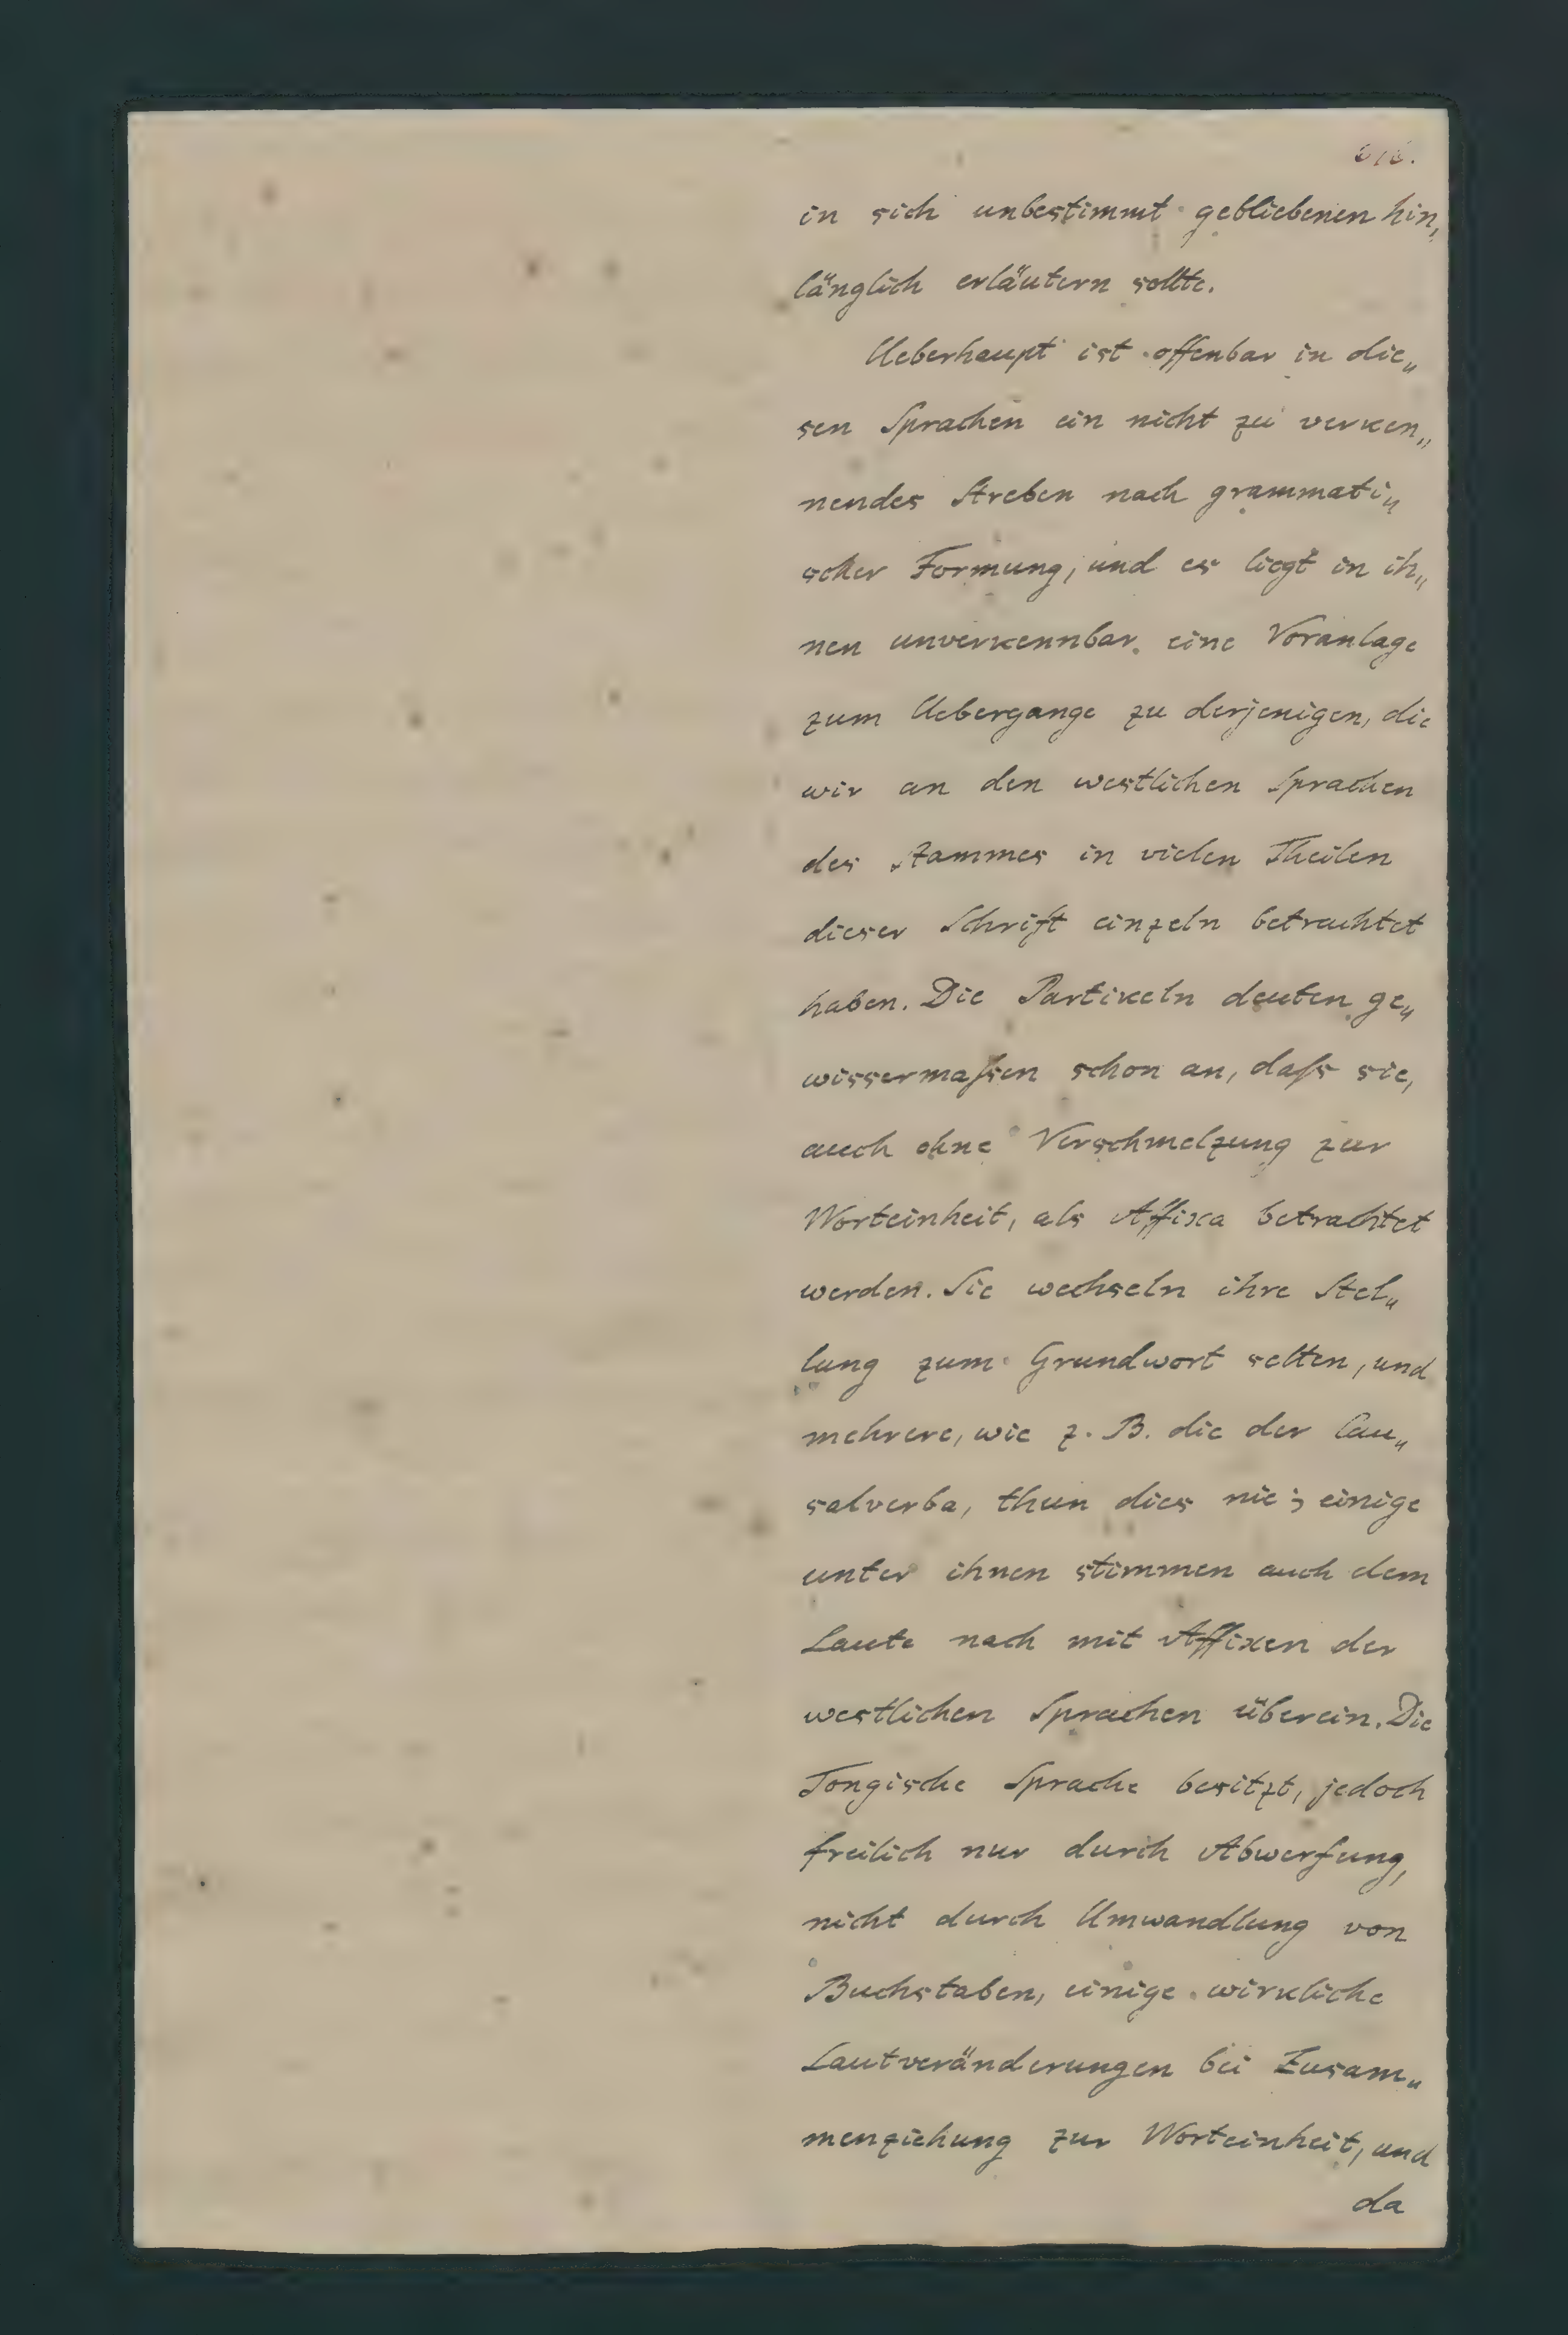 in sich unbestimmt gebliebenen hin„
länglich erläutern sollte.
Ueberhaupt ist offenbar in die„
sen Sprachen ein nicht zu verken„
nendes Streben nach grammati„
scher Formung, und es liegt in ih„
nen unverkennbar eine Voranlage
zum Uebergange zu derjenigen, die
wir an den westlichen Sprachen
des Stammes in vielen Theilen
dieser Schrift einzeln betrachtet
haben. Die Partikeln deuten ge„
wissermaſsen schon an, daſs sie,
auch ohne Verschmelzung zur
Worteinheit, als Affixa betrachtet
werden. Sie wechseln ihre Stel„
lung zum Grundwort selten, und
mehrere, wie z. B. die der Cau„
salverba, thun dies nie; einige
unter ihnen stimmen auch dem
Laute nach mit Affixen der
westlichen Sprachen überein. Die
Tongische Sprache besitzt, jedoch
freilich nur durch Abwerfung,
nicht durch Umwandlung von
Buchstaben, einige wirkliche
Lautveränderungen bei Zusam„
menziehung zur Worteinheit, und
da